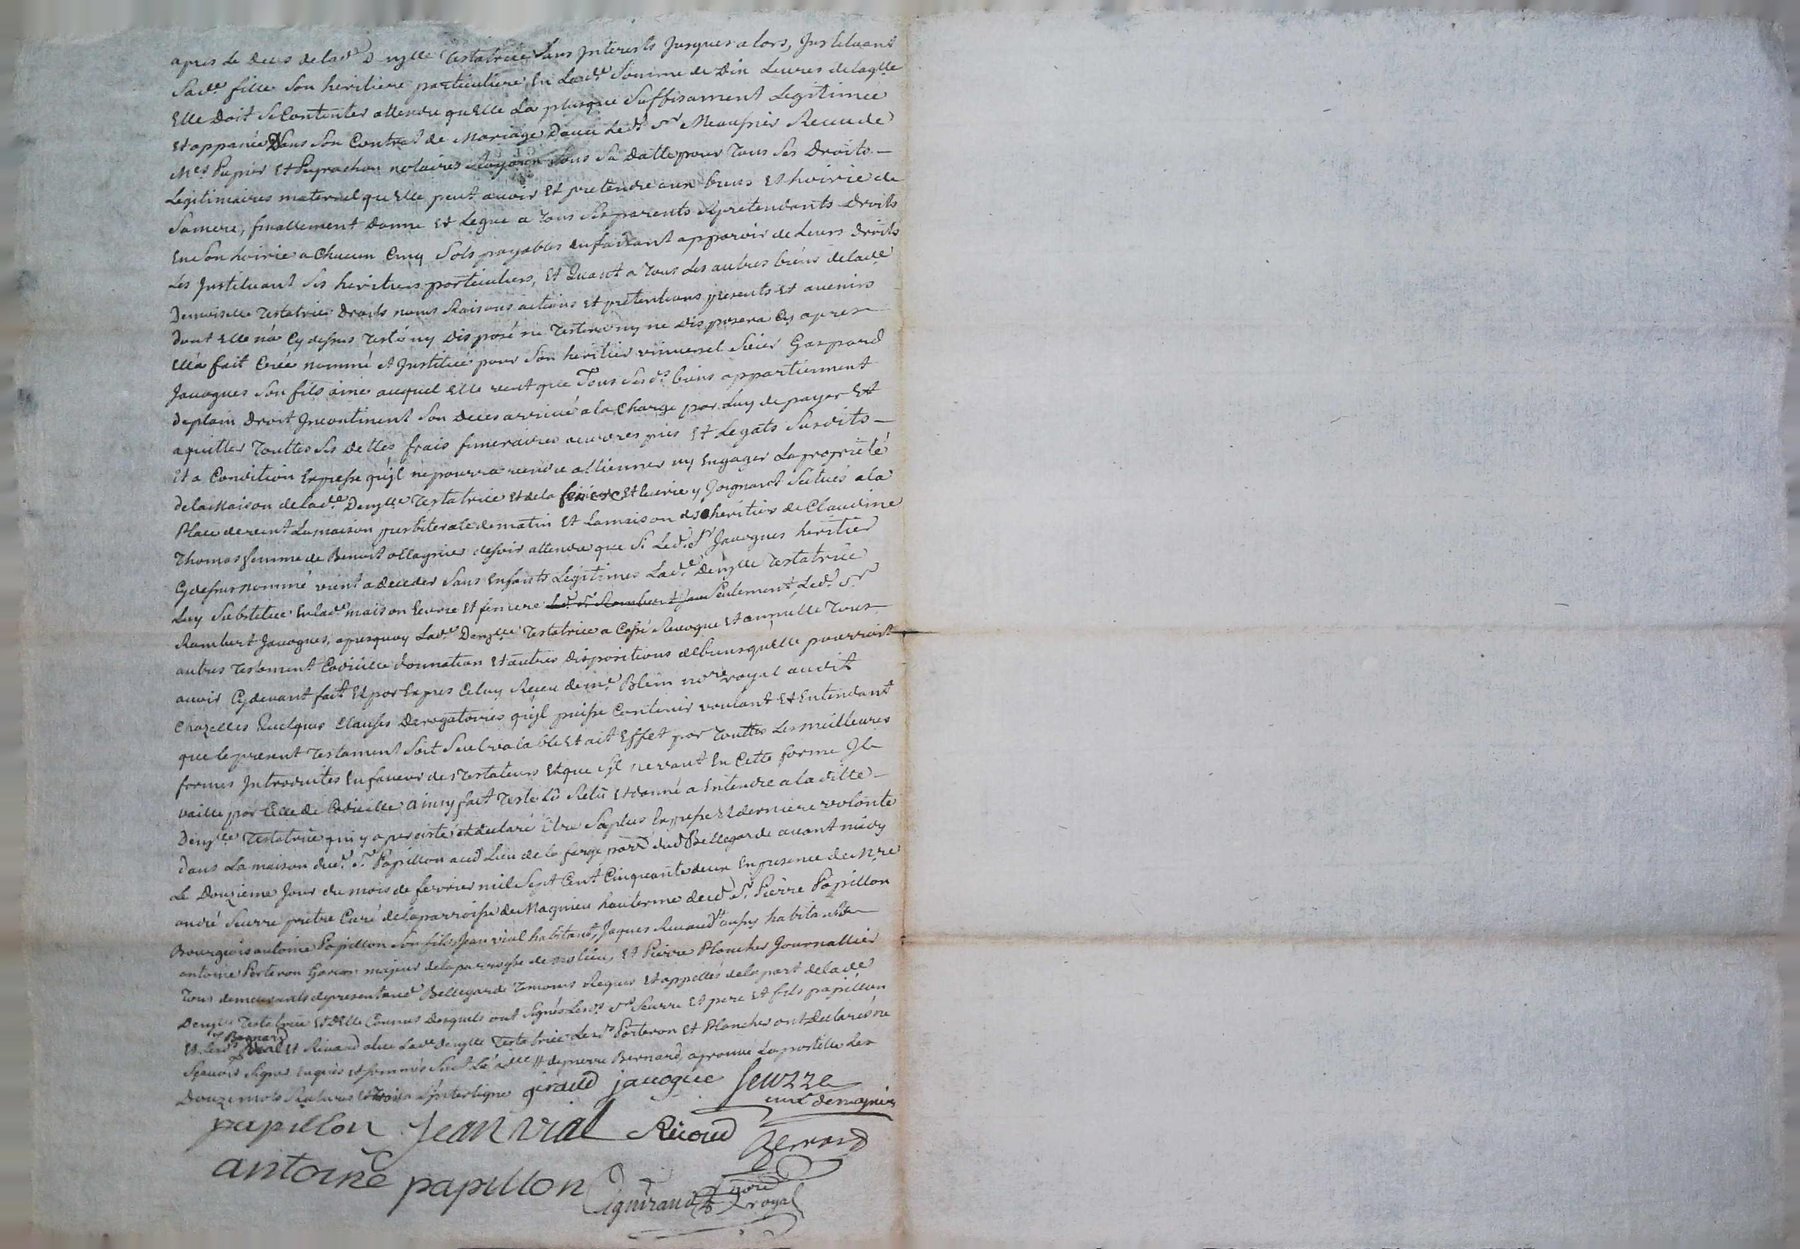 apres le deces de lad.e Dem.lle Testatrice sans Interests Jusques alors, Instituant
Sad.e fille son heritiere particuliere En Lad.e Somme de Dix Livres de laq.lle
Elle Doit se Contenter attendu quElle La plusque suffisament Legitimée
Et appanée Dans son Contrat de Mariage Dauec led.t S.r Meausnier Receu de
M.es Papier Et Peyrachon notaires Royaux sous sa Datte pour Tous ses Droits
Legitimaires maternel quElle peut auoir Et pretendre aux biens Et hoirie de
Samere, finallement Donne Et Legue a Tous ses parents Et pretendants Droits
En son hoirie a Chacun Cinq Sols payables En faisant apparoir de Leurs Droits
Les Instituant ses heritiers particuliers, Et Quant a Tous Les autres biens delad.e
Demoiselle Testatrice Droits noms Raisons actions Et pretentions presents Et auenirs
dont Elle na Cy dessus Testé ny Disposé ne Testera ny ne Disposera Cy apres
Ella fait Creé nommé et Institué pour son heritier vniuersel Sieur Gaspard
Jauogues son fils ainé auquel Elle veut que Tous sesd.s biens appartiennent
deplain Droit Incontinent son Deces arriué a la Charge par Luy de payer Et
aquitter Touttes ses Dettes frais funeraires oeuvres pies Et Legats Susdits
Et a Condition Expresse quil ne pourra vendre alliener ny Engager La proprieté
delamaison delad.e Dem.lle Testatrice Et dela feniere Et Ecurie y Joignant Scitués a la
Place deuent Lamaison presbiterale dematin Et Lamaison des heritier de Claudine
Thomas femme de Benoit ollagnier desoir attendu que Si Led.t S.r Jauogues heritier
Cydessus nommé vient a deceder Sans Enfants Legitimes Lad.e Dem.lle Testatrice
Luy Subtitue En lad.e maison Ecurie Et feniere Seulement Led.t S.r
Rambert Jauogues, apres quoy Lad.e Dem.lle Testatrice a Cassé Reuoque Et annulle Tous
autres Testament Codicille donnation Et autres Dispositions de biens quElle pourroit
auoir Cydeuant fait Et par Expres Celuy Receu de m.e Blein no.re royal audit
Chazelles Quelques Clauses Derogatoires quil puisse Contenir voulant Et Entendant
que le present Testament Soit Seul valable Et ait Effet par Touttes Les meilleures
formes Introduites En faueur des Testateurs Et que Sil ne vaut En Cette forme Il
vaille par Celle de Codicille ainsy fait Testé Lû Relû Et donné a Entendre a la ditte
Dem.lle Testatrice qui y a persisté Et declaré Etre Sa plus Expresse Et derniere volonté
dans La maison dud.t S.r Papillon aud.t Lieu de la farge par.e dud.t Bellegarde auant midy
Le Douzieme Jour du mois de feurier mil Sept Cent Cinquante deux En presence de M.re
andré Seurre prêtre Curé de la parroisse de Magnieu hauterme dud.t S.r Pierre Papillon
Bourgeois antoine Papillon Son fils, Jean vial habitant, Jaques Renaud aussy habitant
antoine Porteron Garcon majeur de la parroisse de Et Pierre Plancher Journallier
Tous demeurants de presente a Bellegarde Temoins Requis Et appellés de la part de lad.e
Dem.lle Testatrice Et d'Elle Connus Desquels ont Signés Lesd.s S.rs Seurre Et pere Et fils papillon
S.r Bernard
Et Led.t Vial Et Renaud auec Lad.e dem.lle Testatrice Lesd.s Porteron Et Plancher ont declarés ne
Scauoir Signer Enquis et sommés de pierre Bernard aprouue La postille Les
Douze mots Raturés Interligne giraud jauogue Seurre
curé de magnieu
papillon Jean vial Renaud Bernard
antoine papillon Guiraud no.re
royal